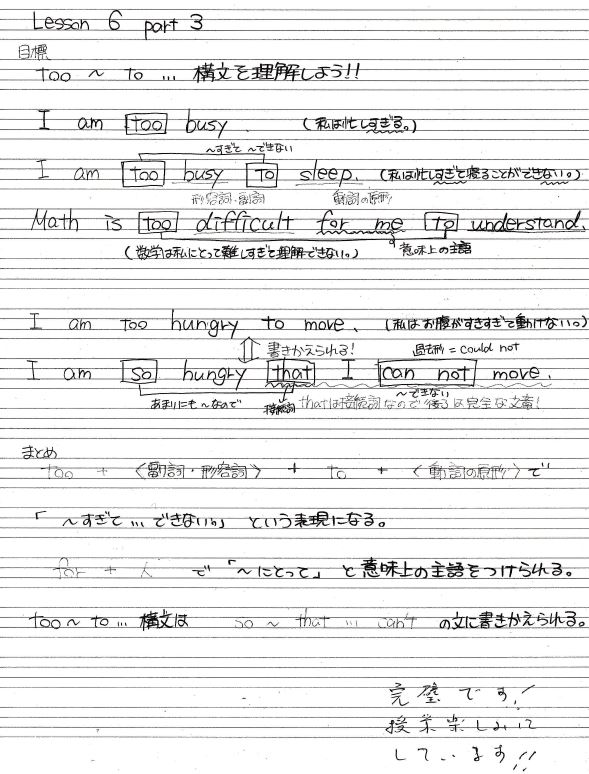 Lesson 6 part 3
目標
too ~ to ... 構文を理解しよう!!
I am too busy. (私は忙しすぎる。)
~すぎて ~できない
I am too busy to sleep. (私は忙しすぎて寝ることができない。)
形容詞・副詞 動詞の原形
Math is too difficult for me to understand.
(数学は私にとって難しすぎて理解できない。) 意味上の主語
I am too hungry to move. (私はお腹がすきすぎて動けない。)
書きかえられる! 過去形 = could not
I am so hungry that I can not move.
~できない
あまりにも~なので 接続詞 thatは接続詞なので後ろは完全な文章!
まとめ
too + <副詞・形容詞> + to + <動詞の原形>で
「~すぎて...できない。」という表現になる。
for + 人 で「~にとって」と意味上の主語をつけられる。
too ~ to ... 構文は so ~ that ... can't の文に書きかえられる。
完璧です!
授業楽しみに
しています!!